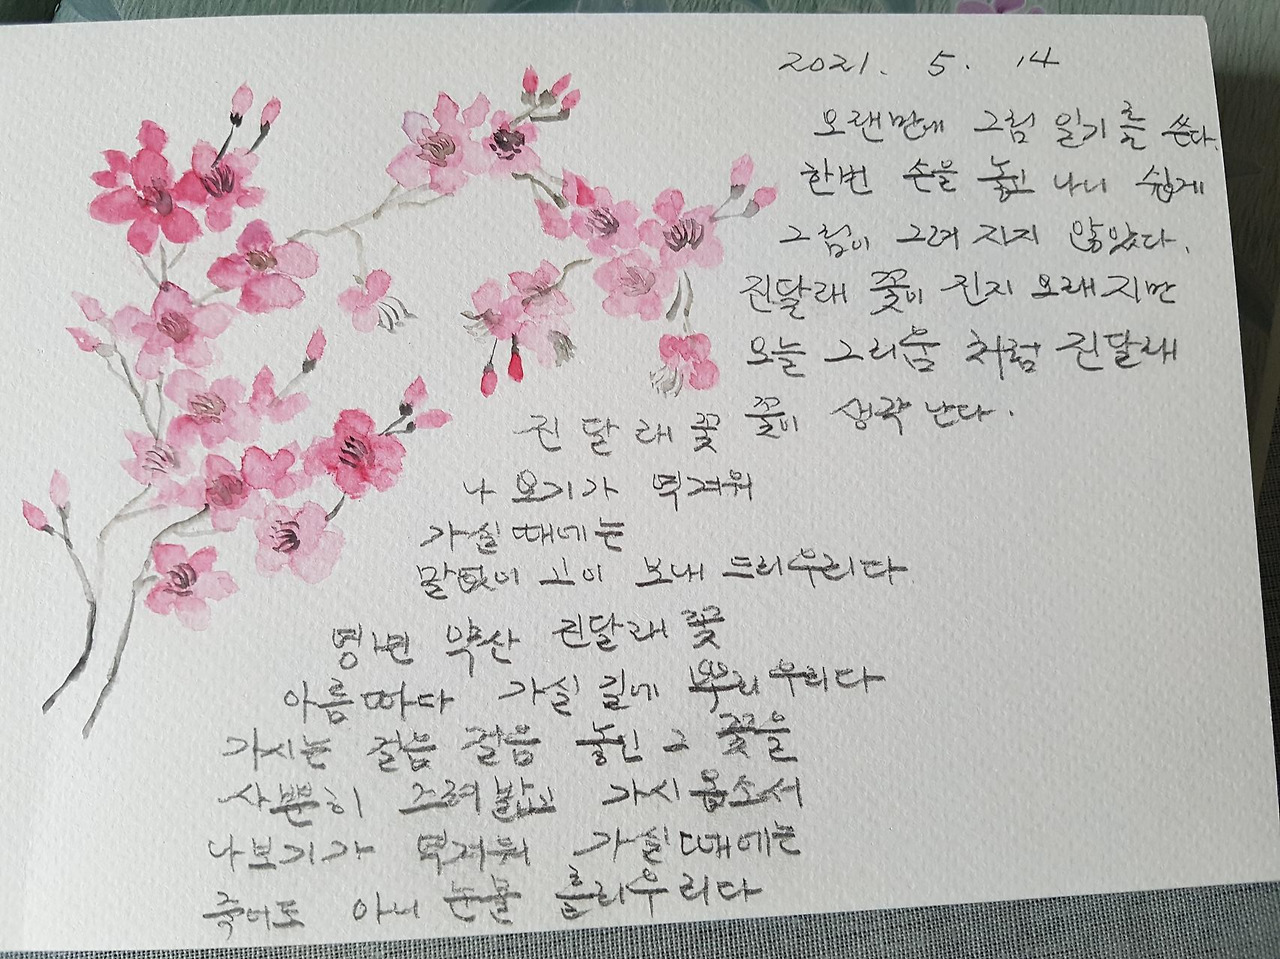 2021. 5. 14
오랜만에 그림 일기를 쓴다.
한번 손을 놓고 나니 쉽게
그림이 그려 지지 않았다.
진달래 꽃이 진지 오래 지만
오늘 그리움 처럼 진달래
꽃이 생각 난다.
진달래꽃
나 보기가 역겨워
가실때에는
말없이 고이 보내 드리우리다
영변 약산 진달래꽃
아름따다 가실 길에 뿌리우리다
가시는 걸음 걸음 놓인 그 꽃을
사뿐히 즈려밟고 가시옵소서
나보기가 역겨워 가실때에는
죽어도 아니 눈물 흘리우리다